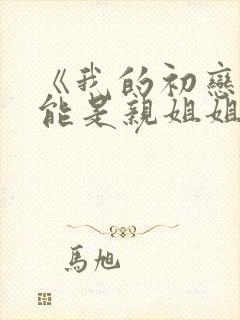 《我的初戀
能是親姐姐
馬旭